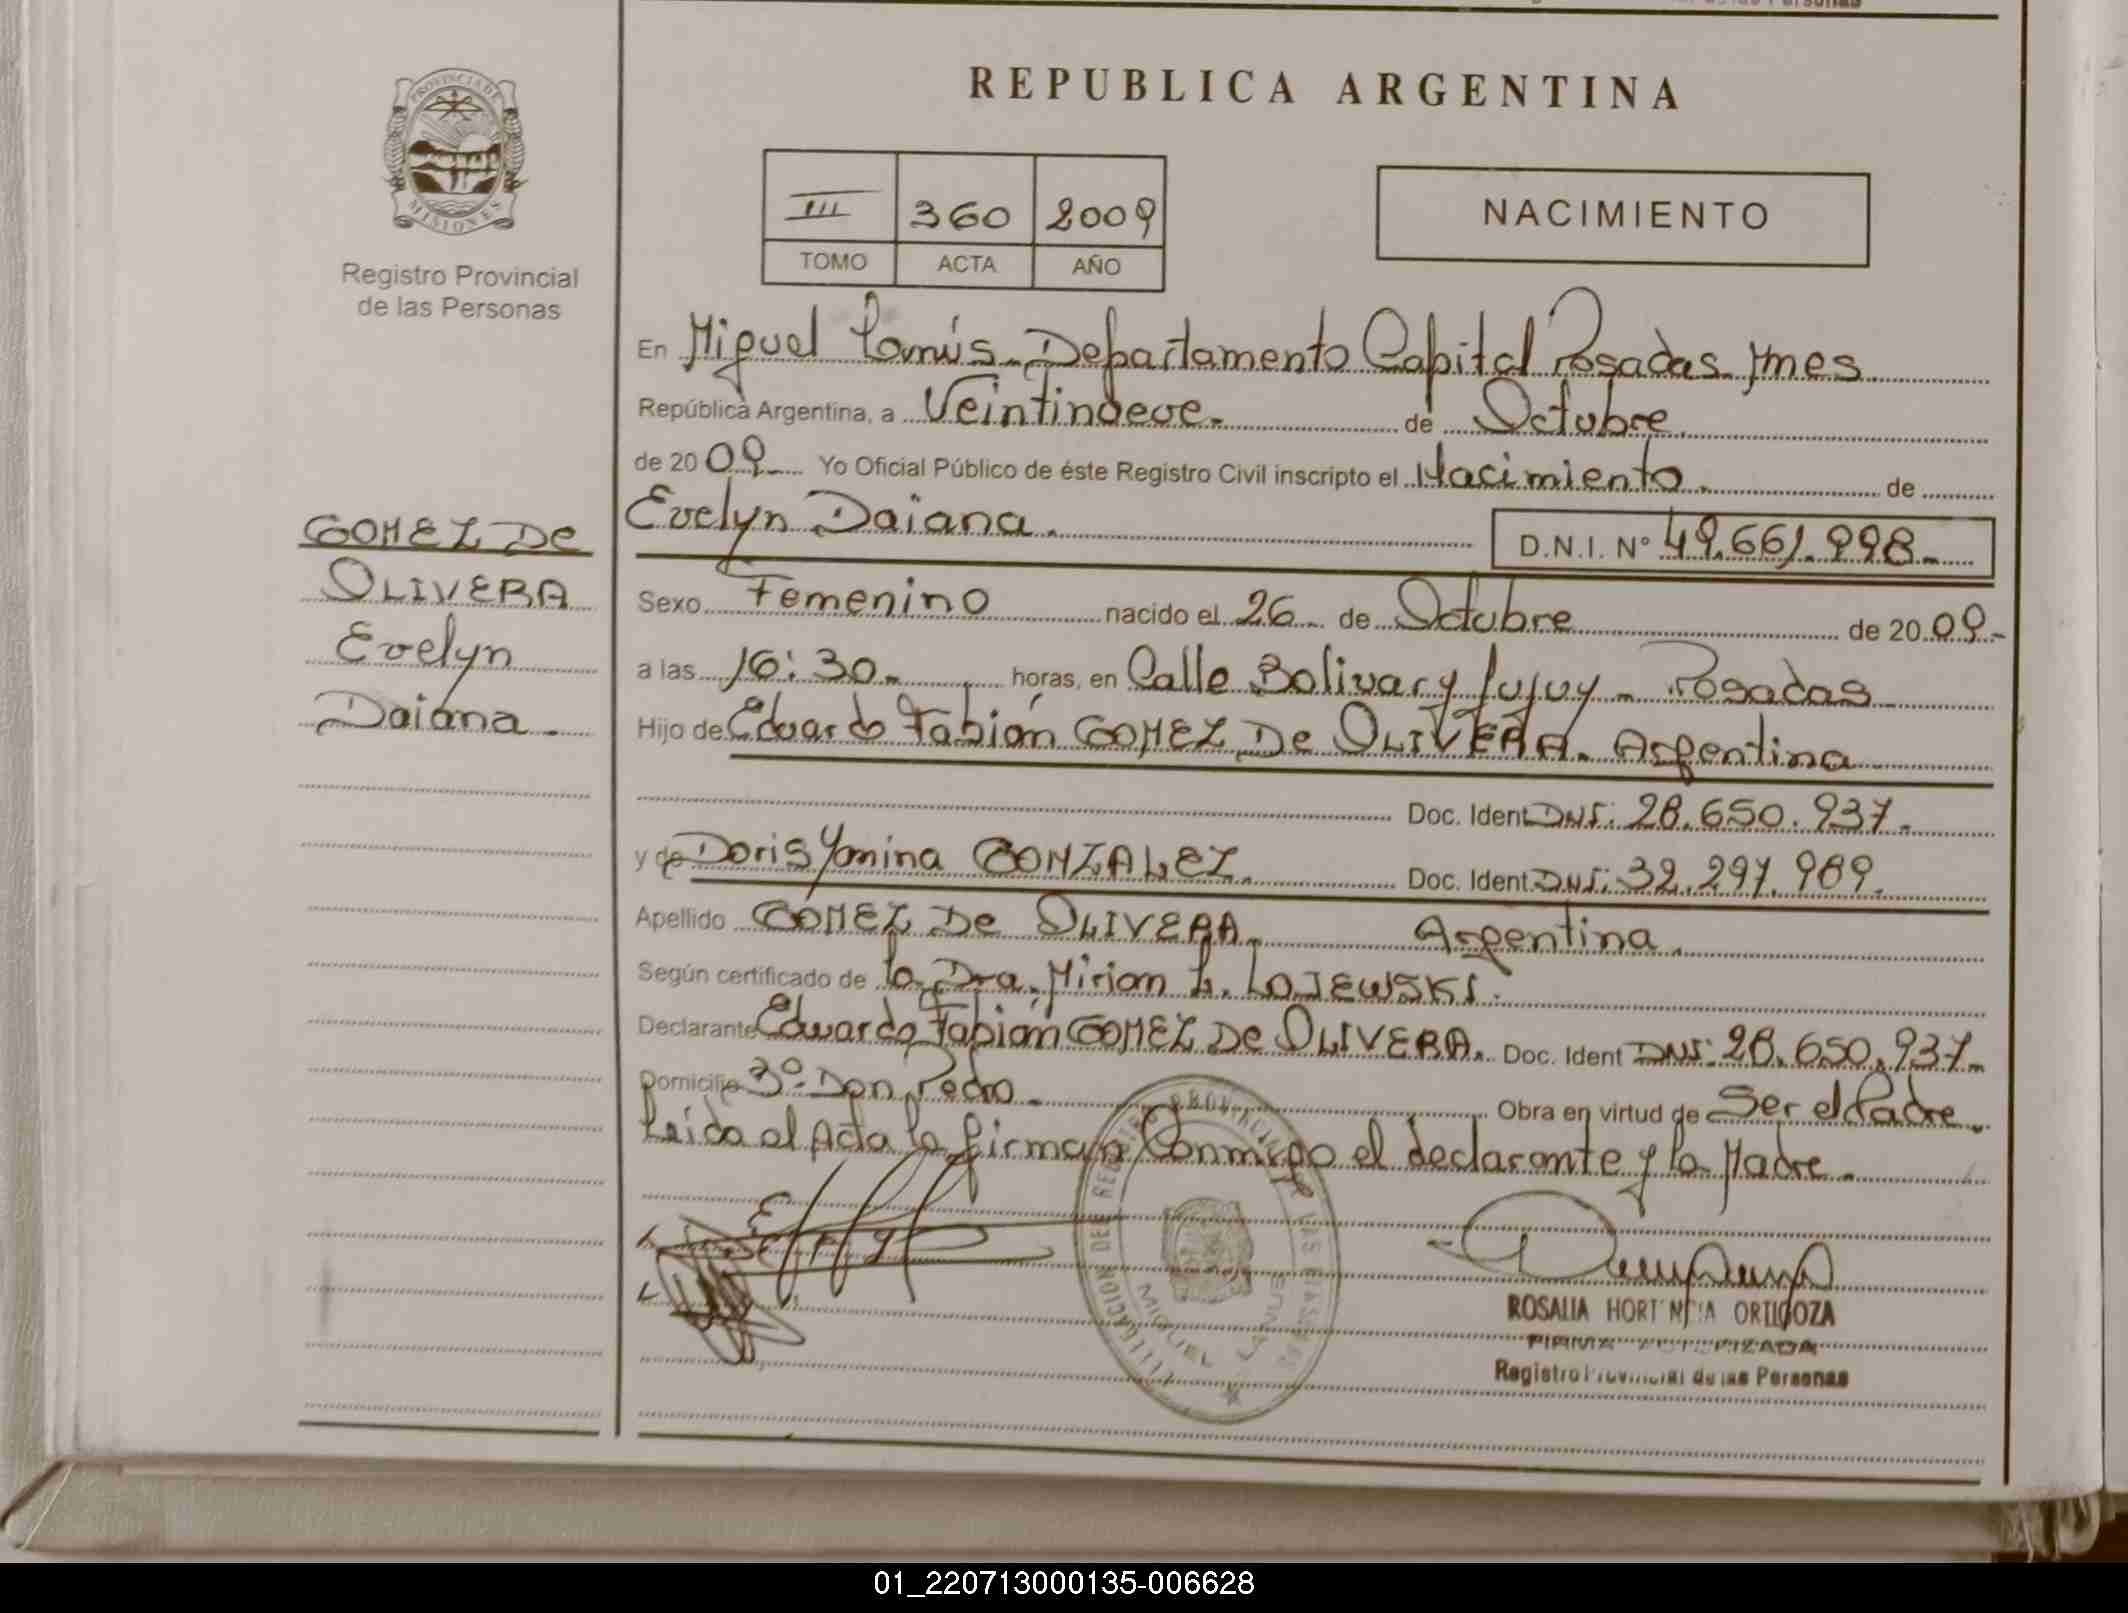 REPUBLICA ARGENTINA
PROVINCIA DE
MISIONES
Registro Provincial
de las Personas
III 360 2009
TOMO ACTA AÑO
NACIMIENTO
En Miguel Lanús - Departamento Capital Posadas Mnes
República Argentina, a Veintinueve - de Octubre
de 2009 Yo Oficial Público de éste Registro Civil inscripto el Nacimiento - de
Evelyn Daiana.
D.N.I. Nº 49.661.998.-
GOMEZ De
OLIVERA
Evelyn
Daiana.
Sexo Femenino nacido el 26 de Octubre de 2009.-
a las 16:30- horas, en Calle Bolivar y Jujuy - Posadas
Hijo de Eduardo Fabián GOMEZ De OLIVERA. Argentina
Doc. Ident DNI: 28.650.937.-
y de Doris Yanina GONZALEZ. Doc. Ident. DNI: 32.297.989.
Apellido GOMEZ De OLIVERA. Argentina.
Según certificado de la Dra. Mirian L. LOJEWSKI.
Declarante Eduardo Fabián GOMEZ De OLIVERA. Doc. Ident DNI: 28.650.937.-
Domicilio 3º Don Pedro.- Obra en virtud de Ser el Padre.
Leida el Acta la firman Conmigo el declarante y la Madre.-
DELEGACION DEL REGISTRO PROVINCIAL DE LAS PERSONAS
MIGUEL LANUS
ROSALIA HORTENCIA ORTIGOZA
FIRMA AUTORIZADA
Registro Provincial de las Personas
01_220713000135-006628